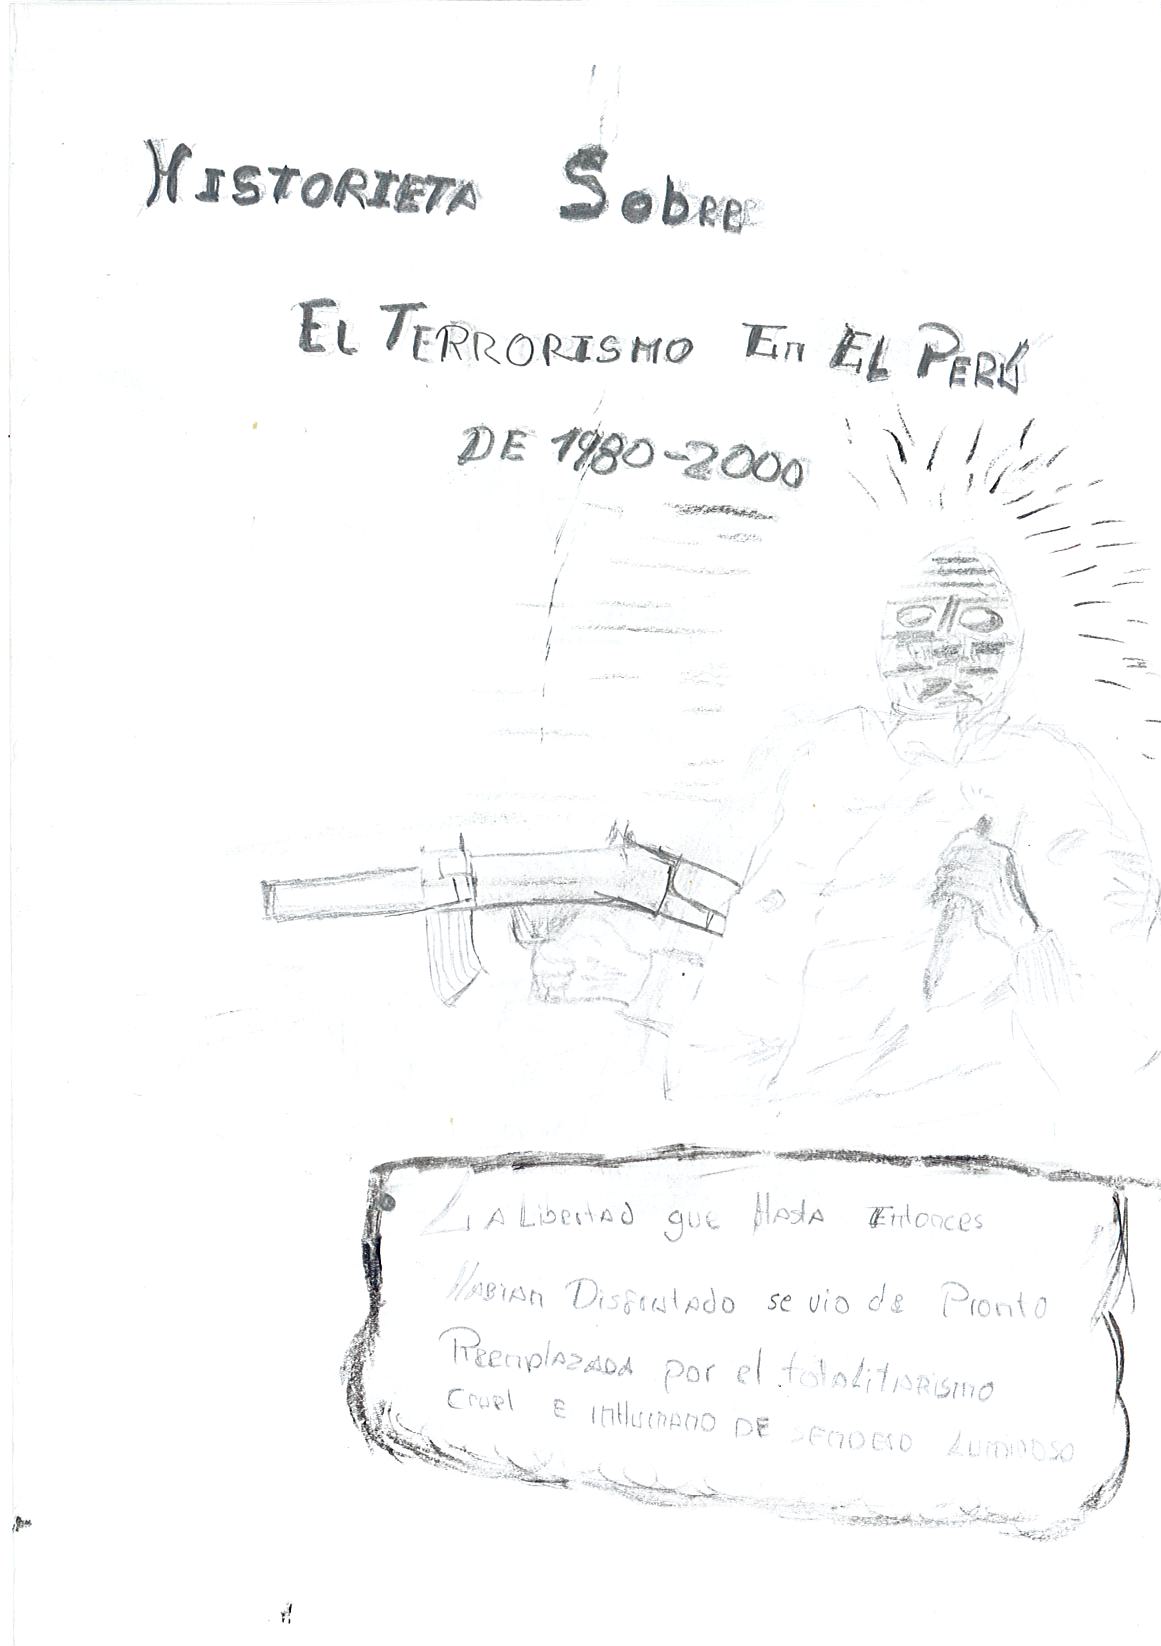 HISTORIETA Sobre
EL TERRORISMO En EL PERÚ
DE 1980-2000
LA Libertad que Hasta Entonces
HABIAN Disfrutado se vio de Pronto
Reemplazada por el totalitarismo
Cruel E inhumano DE SENDERO LUMINOSO